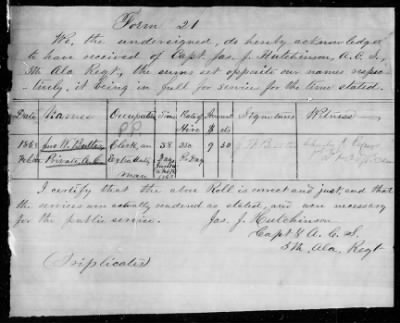 Form 21
We, the undersigned, do hereby acknowledge
to have received of Capt. Jas. J. Hutchinson, A. C. S.,
5th Ala Regt, the sums set opposite our names respec-
tively, it being in full for service for the time stated.
Date Names Occupation Time Rate of Hire Amount $ cts Signatures Witness
1863 Jno W. Butler Clerk, an 38 25c 9 50
Private, A. C. Extra duty Days Pr Day
man
I certify that the above Roll is correct and just and that
the services were actually rendered as stated, and were necessary
for the public service. Jas. J. Hutchinson
Capt & A. C. S.
5th, Ala, Regt
(Triplicates)